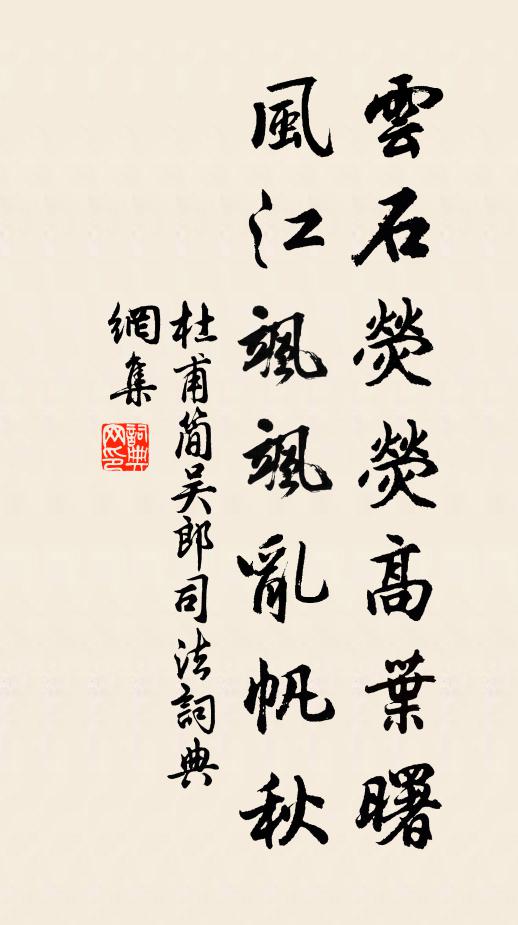 雲石熒熒高葉曙
風江颯颯亂帆秋
杜甫簡吳郎司法詞典
網集
詞典網印